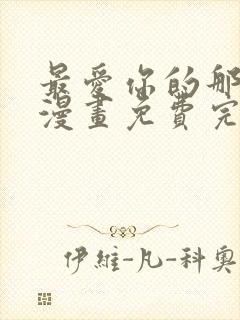 最愛你的那
漫畫免費完
伊維-凡-科奧